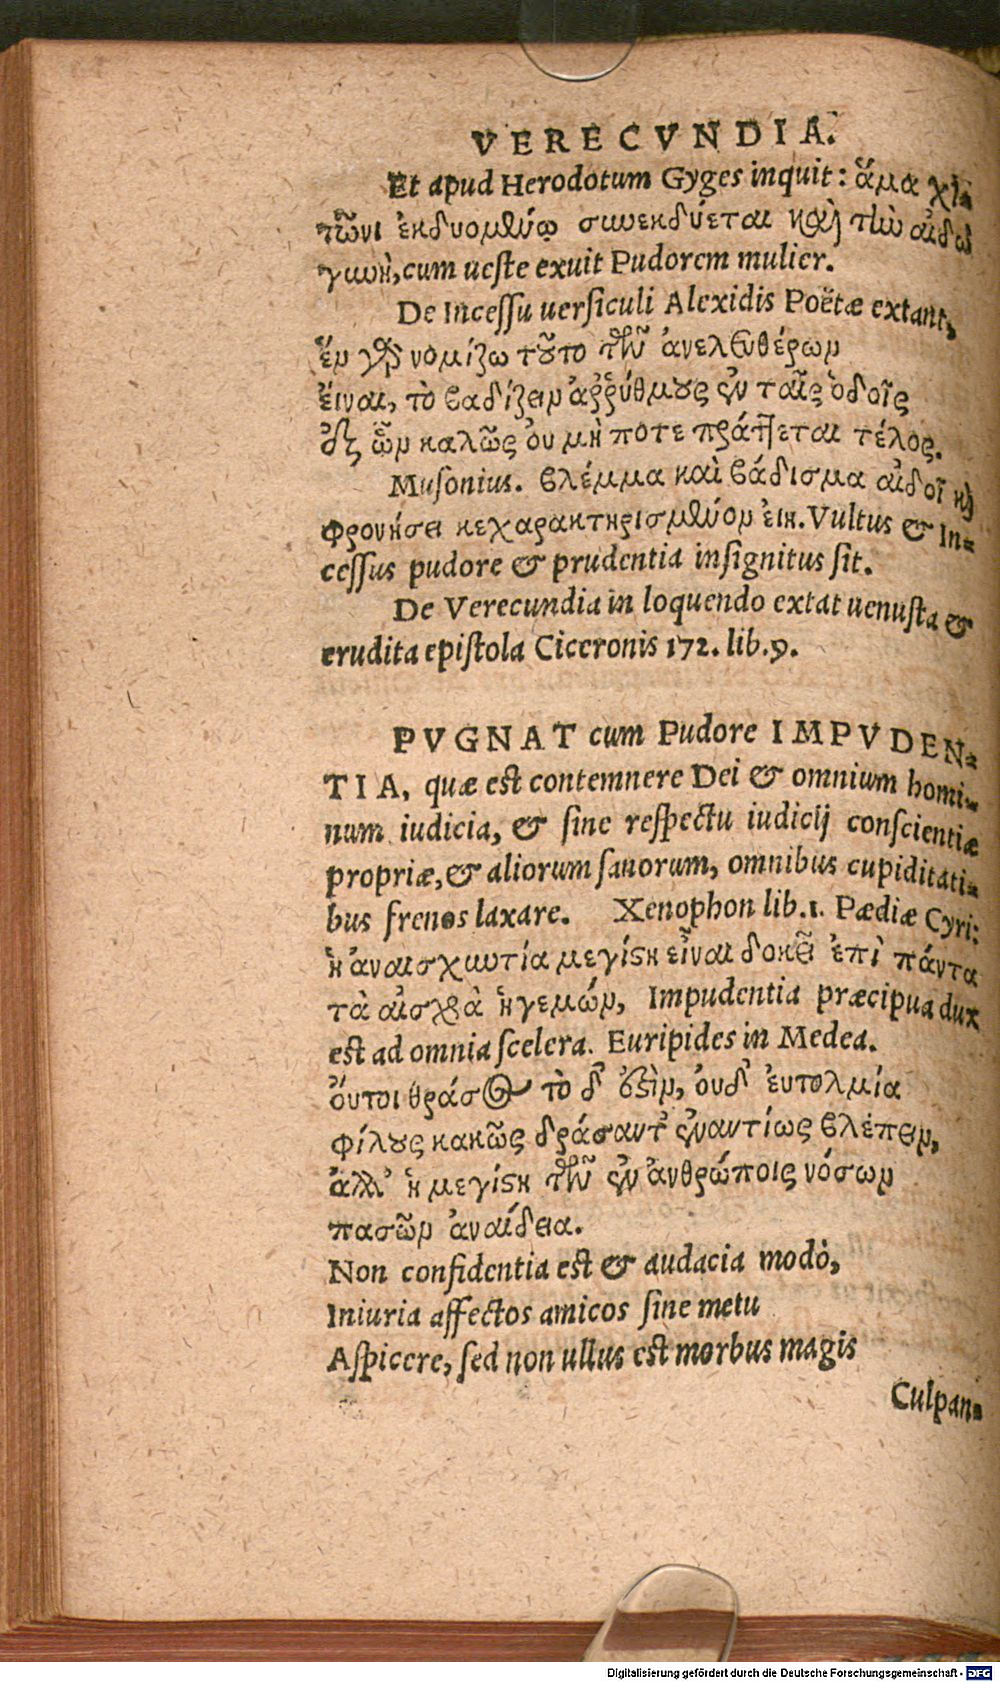 VERECVNDIA.
Et apud Herodotum Gyges inquit: ἅμα χι-
τῶνι ἐκδυομένῳ συνεκδύεται καὶ τὴν αἰδῶ
γυνή, cum ueste exuit Pudorem mulier.
De Incessu uersiculi Alexidis Poëtæ extant,
ἓν γὰρ νομίζω τοῦτο τῶν ἀνελευθέρων
εἶναι, τὸ βαδίζειν ἀῤῥύθμους ἐν ταῖς ὁδοῖς
ἐξ ὧν καλῶς ὀυ μή ποτε πράττεται τέλος.
Musonius. βλέμμα καὶ βάδισμα αἰδοῖ καὶ
φρονήσει κεχαρακτηρισμένον εἴη. Vultus & In-
cessus pudore & prudentia insignitus sit.
De Verecundia in loquendo extat uenusta &
erudita epistola Ciceronis 172. lib.9.
PVGNAT cum Pudore IMPVDEN-
TIA, quæ est contemnere Dei & omnium homi-
num iudicia, & sine respectu iudicij conscientiæ
propriæ, & aliorum sanorum, omnibus cupiditati-
bus frenos laxare. Xenophon lib.1. Pædiæ Cyri:
ἡ ἀναισχυντία μεγίστη εἶναι δοκεῖ ἐπὶ πάντα
τὰ αἰσχρὰ ἡγεμών, Impudentia præcipua dux
est ad omnia scelera. Euripides in Medea.
ὄυτοι θράσος τὸ δ' ἐστὶν, ὀυδ' ἐυτολμία
φίλους κακῶς δράσαντ' ἐναντίως βλέπειν,
ἀλλ' ἡ μεγίστη τῶν ἐν ἀνθρώποις νόσων
πασῶν ἀναίδεια.
Non confidentia est & audacia modò,
Iniuria affectos amicos sine metu
Aspicere, sed non ullus est morbus magis
Culpan-
Digitalisierung gefördert durch die Deutsche Forschungsgemeinschaft - DFG